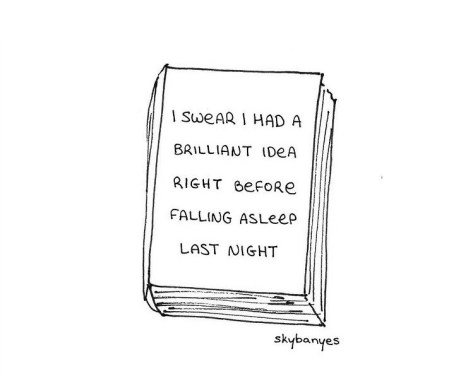 I SWeAR I HAD A
BRILLIANT IDeA
RIGHT BeFORe
FALLING ASLeeP
LAST NIGHT
skybanyes